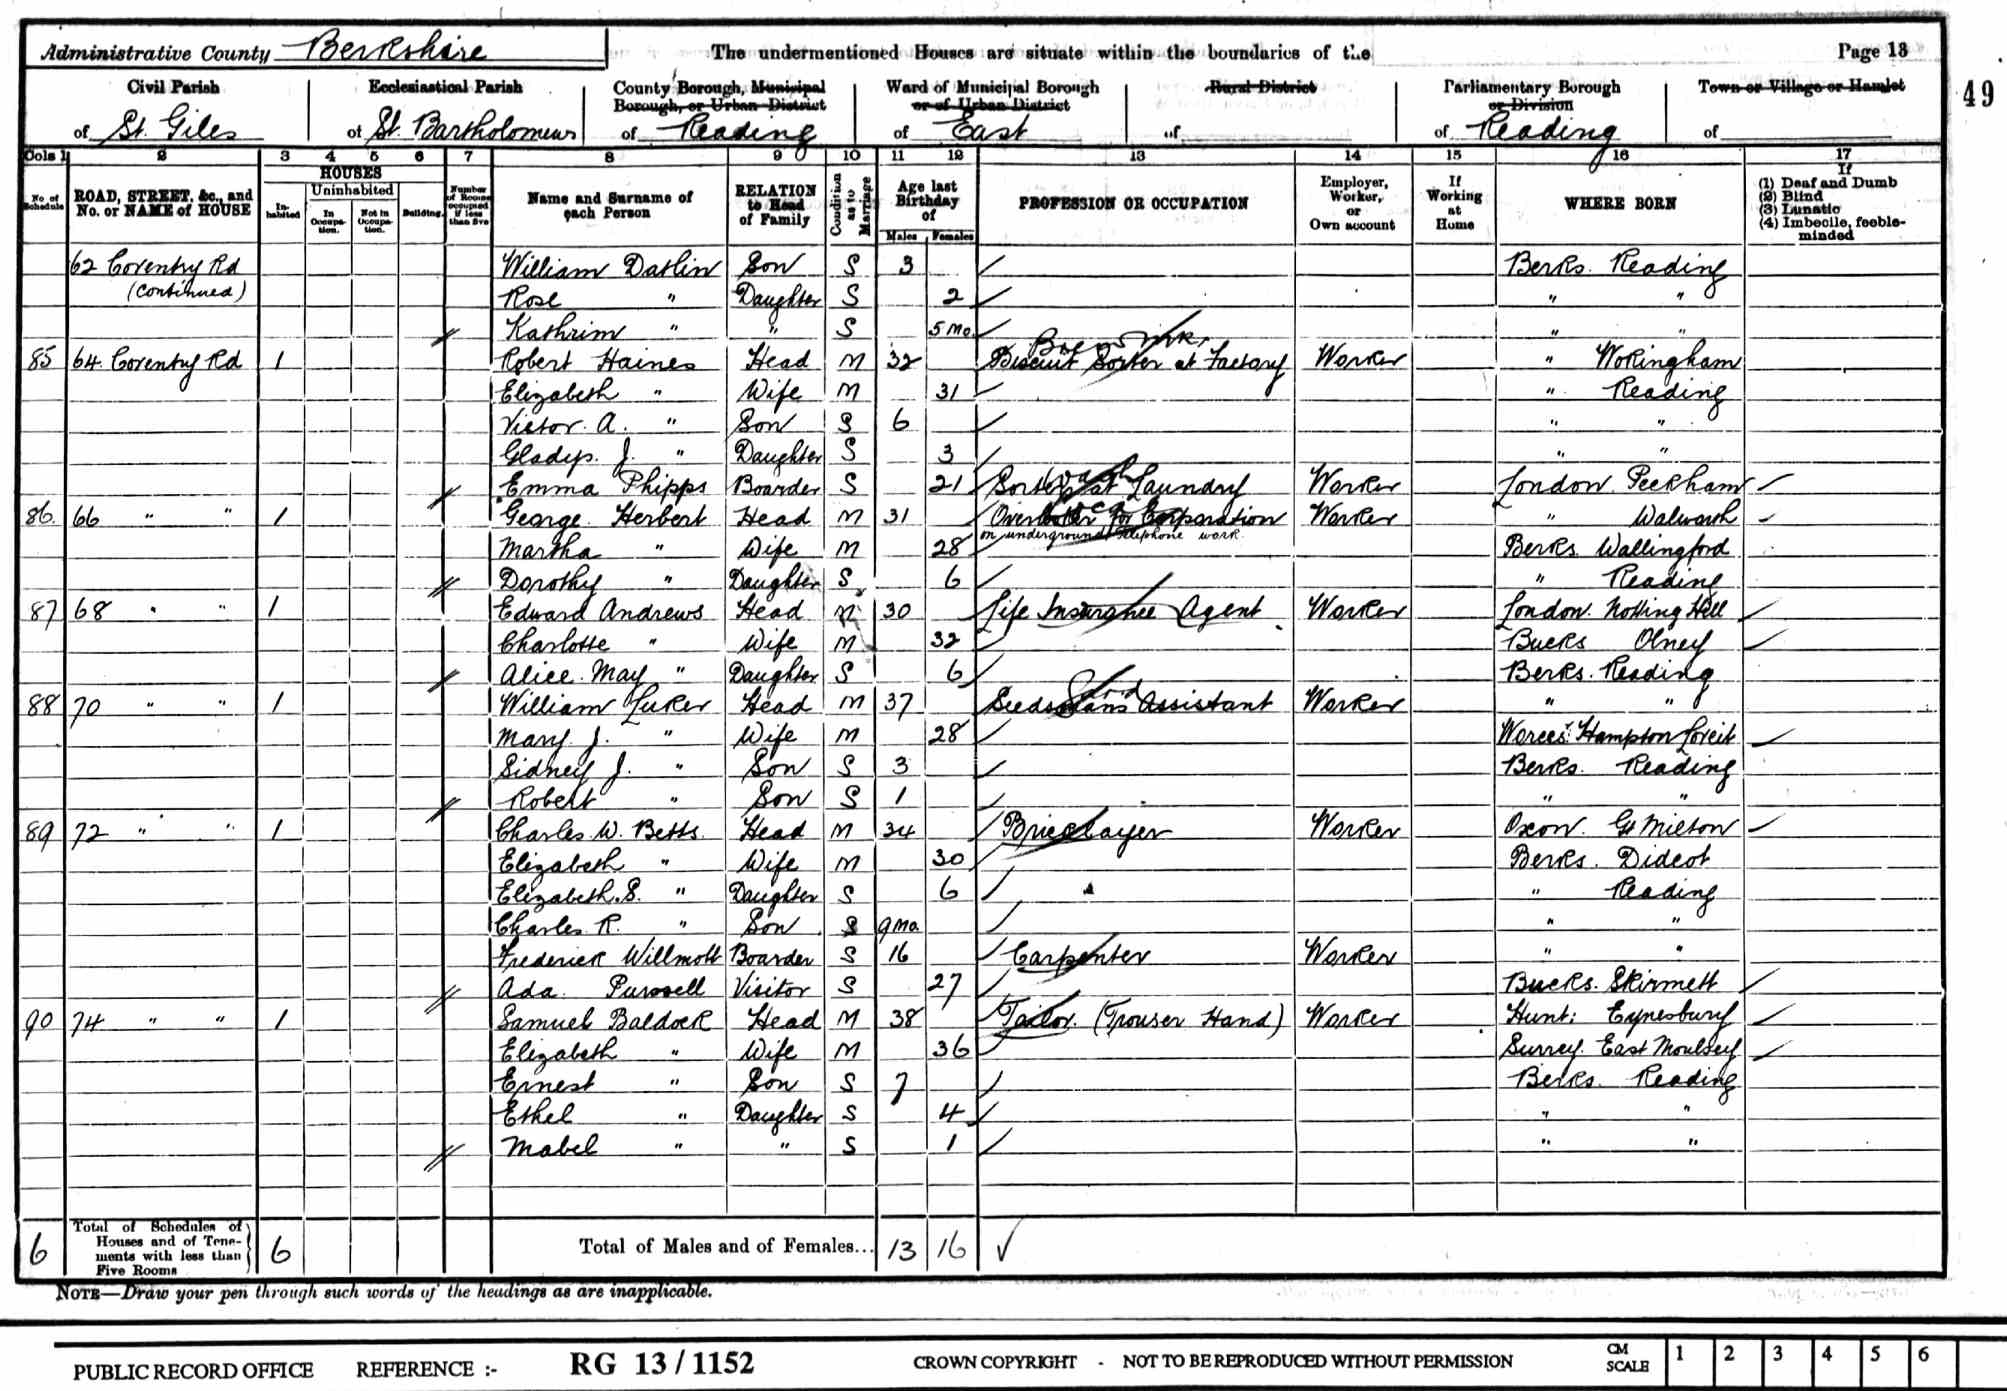 Administrative County Berkshire The undermentioned Houses are situate within the boundaries of the Page 13
49
Civil Parish Ecclesiastical Parish County Borough, Municipal Borough, or Urban District Ward of Municipal Borough or of Urban District Rural District Parliamentary Borough or Division Town or Village or Hamlet
of St. Giles of St. Bartholomews of Reading of East of of Reading of
Cols 1 2 3 4 5 6 7 8 9 10 11 12 13 14 15 16 17
No of Schedule ROAD, STREET, &c., and No. or NAME of HOUSE HOUSES In-habited Uninhabited In Occupa-tion. Not in Occupa-tion. Building. Number of Rooms occupied if less than five Name and Surname of each Person RELATION to Head of Family Condition as to Marriage Age last Birthday of Males Females PROFESSION OR OCCUPATION Employer, Worker, or Own account If Working at Home WHERE BORN If (1) Deaf and Dumb (2) Blind (3) Lunatic (4) Imbecile, feeble-minded
62 Coventry Rd William Datlin Son S 3 Berks. Reading
(Continued) Rose " Daughter S 2 " "
Kathrim " " S 5 Mo. " "
85 64. Coventry Rd 1 Robert Haines Head M 32 Biscuit Sorter at Factory Worker " Wokingham
Elizabeth " Wife M 31 " Reading
Victor. A. " Son S 6 " "
Gladys. J. " Daughter S 3 " "
Emma Phipps Boarder S 21 Sorter at Laundry Worker London. Peckham
86. 66 " " 1 George Herbert Head M 31 Overlooker for Corporation Worker " Walworth
on underground telephone work
Martha " Wife M 28 Berks. Wallingford
Dorothy " Daughter S 6 " Reading
87 68 " " 1 Edward Andrews Head M 30 Life Insurance Agent Worker London. Notting Hill
Charlotte " Wife M 32 Bucks Olney
Alice. May " Daughter S 6 Berks. Reading
88 70 " " 1 William Luker Head M 37 Seedsmans Assistant Worker " "
Mary. J. " Wife M 28 Worces: Hampton Loveit
Sidney J. " Son S 3 Berks. Reading
Robert " Son S 1 " "
89 72 " " 1 Charles. W. Betts. Head M 34 Bricklayer Worker Oxon. Gt Milton
Elizabeth " Wife M 30 Berks. Didcot
Elizabeth. S. " Daughter S 6 " Reading
Charles R. " Son S 9 Mo. " "
Frederick Willmott Boarder S 16 Carpenter Worker " "
Ada. Pursell Visitor S 27 Bucks. Skirmett
90 74 " " 1 Samuel Baldock Head M 38 Tailor. (Trouser Hand) Worker Hunt: Eynesbury
Elizabeth " Wife M 36 Surrey. East Moulsey
Ernest " Son S 7 Berks. Reading
Ethel " Daughter S 4 " "
Mabel " " S 1 " "
6 Total of Schedules of Houses and of Tene-ments with less than Five Rooms 6 Total of Males and of Females... 13 16
NOTE—Draw your pen through such words of the headings as are inapplicable.
PUBLIC RECORD OFFICE REFERENCE :- RG 13 / 1152 CROWN COPYRIGHT - NOT TO BE REPRODUCED WITHOUT PERMISSION CM SCALE 1 2 3 4 5 6